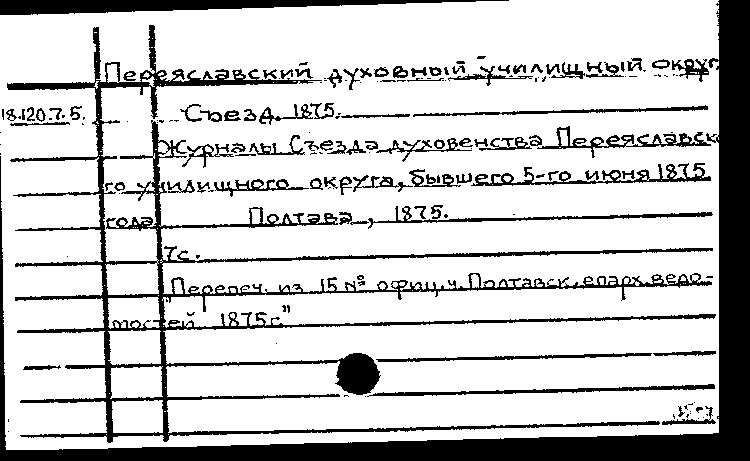 Переяславский духовный училищный округ
18.120.7.5. Съезд. 1875.
Журналы Съезда духовенства Переяславско
го училищного округа, бывшего 5-го июня 1875
года Полтава, 1875.
7с.
"Перепеч. из 15 № офиц.ч. Полтавск. епарх. ведо-
мостей 1875г"